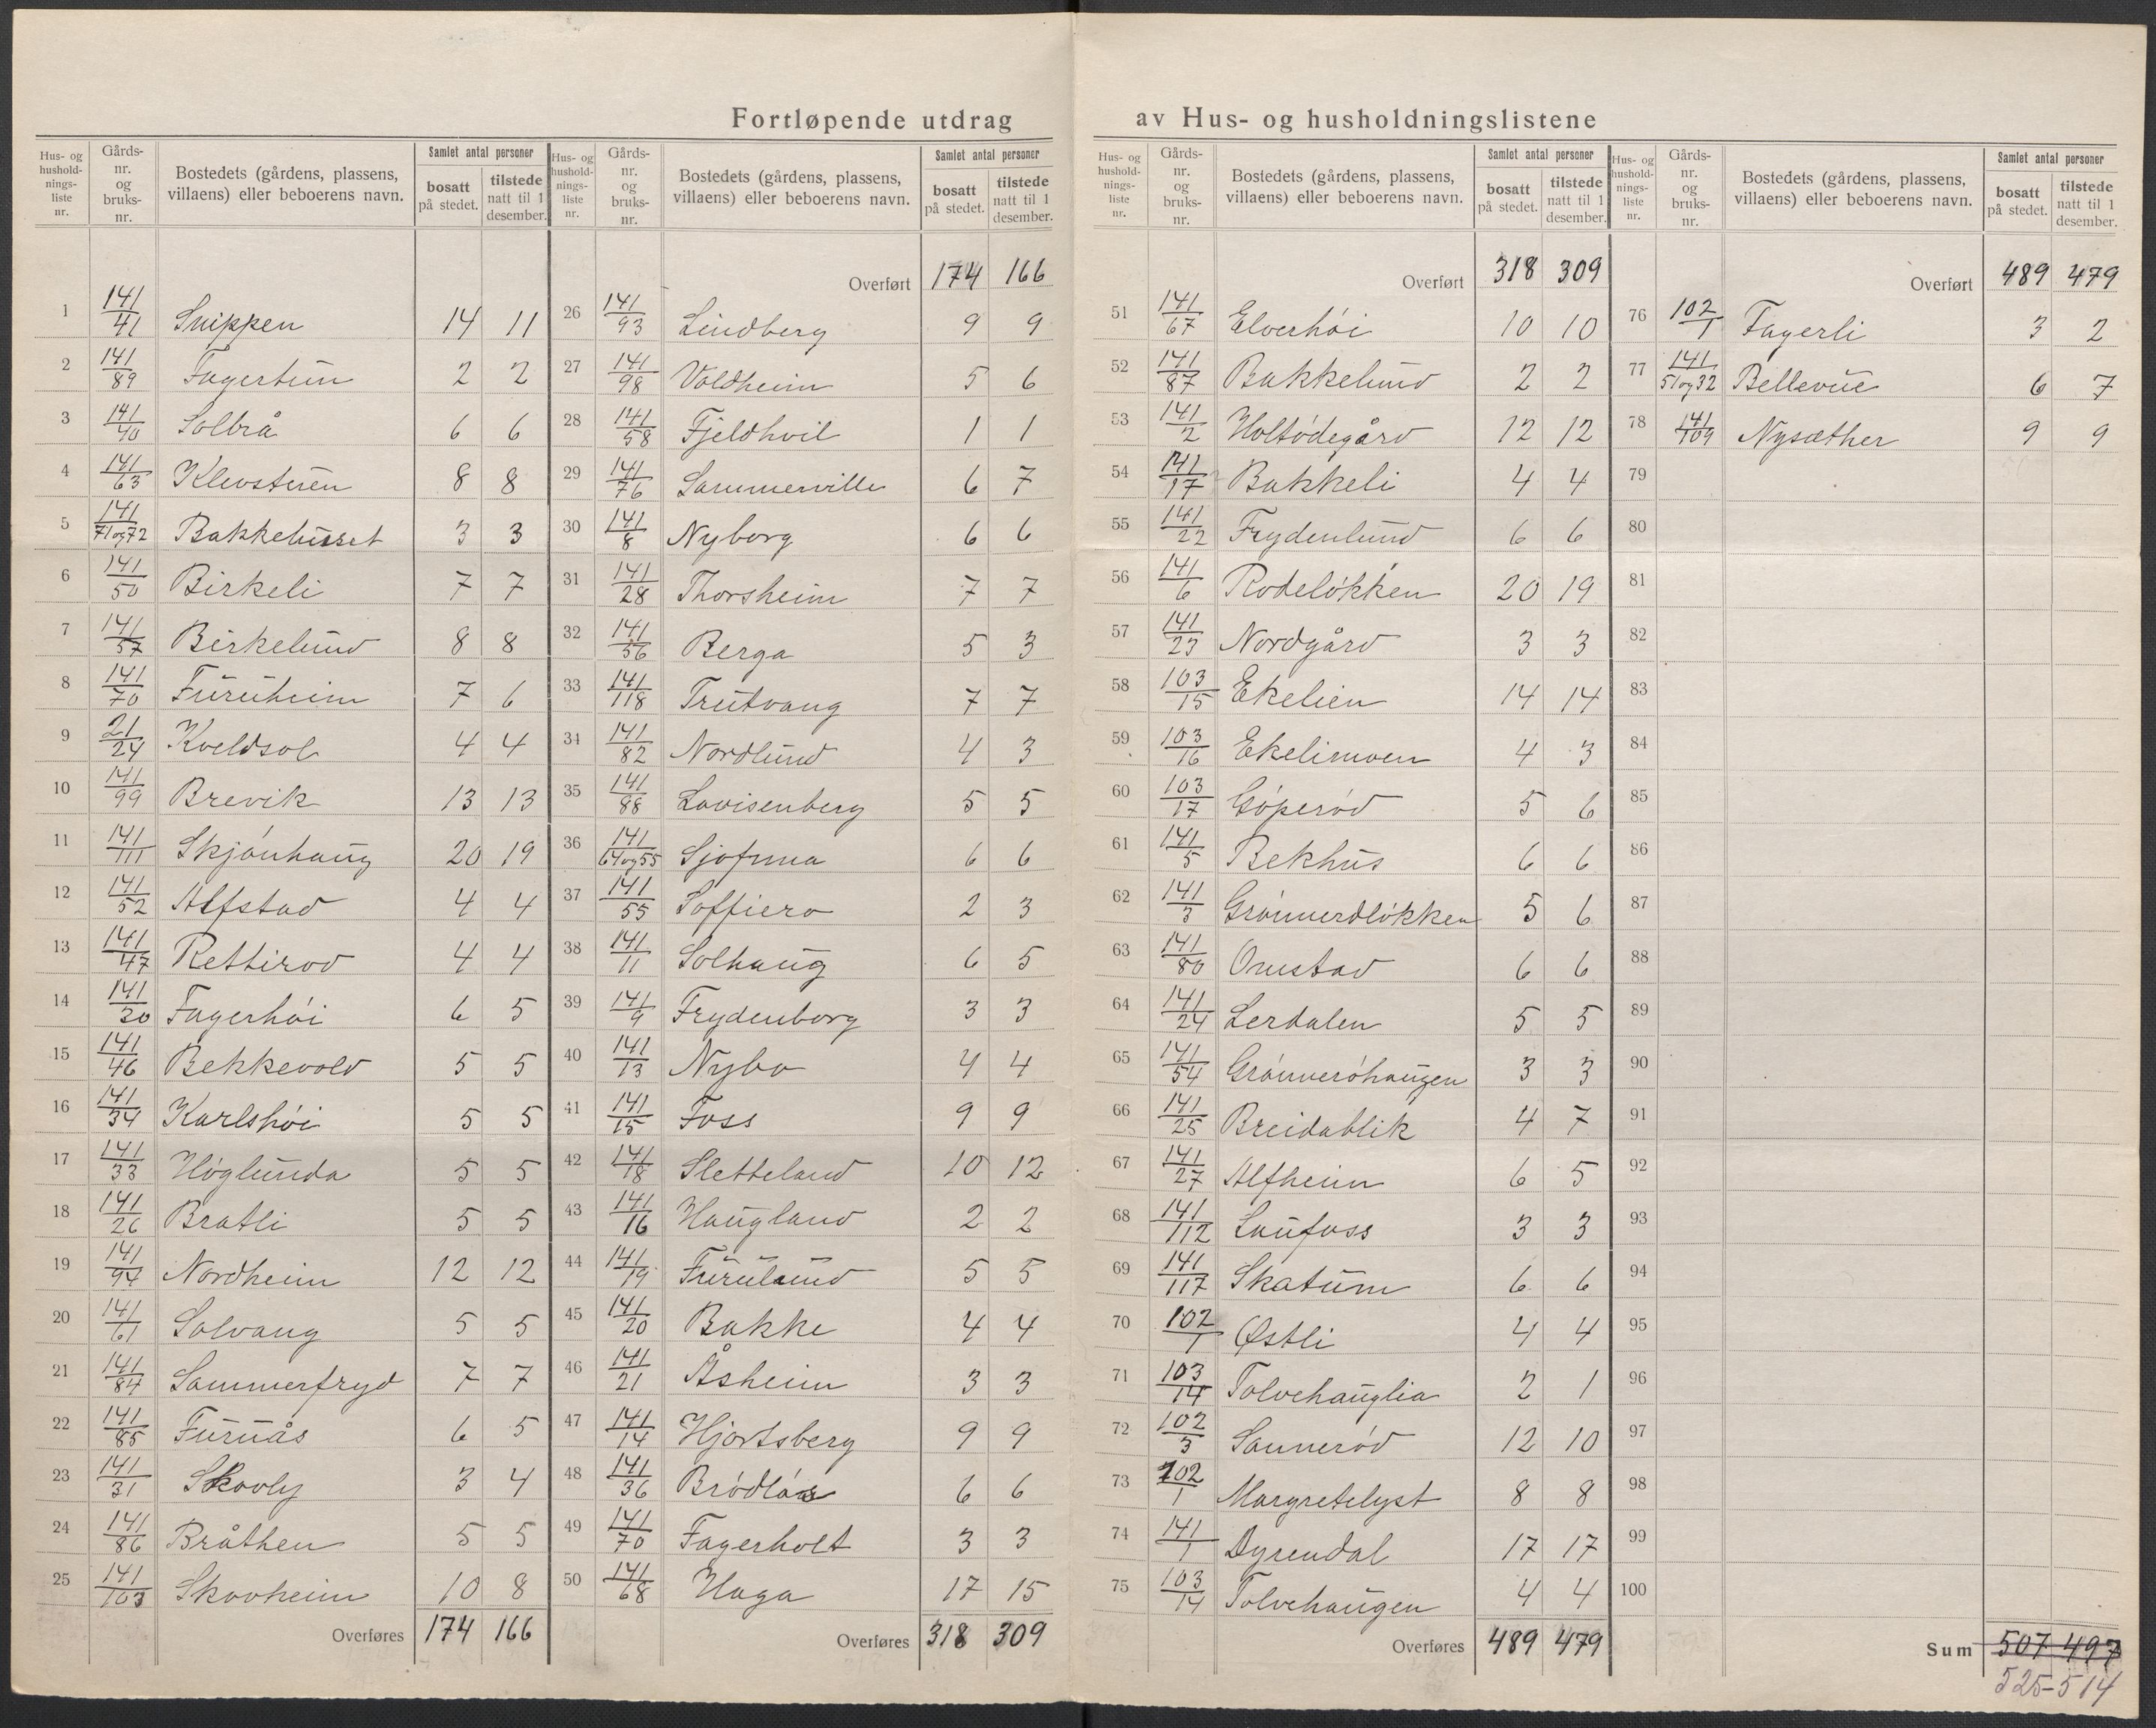 Fortløpende utdrag av Hus- og husholdningslistene
Hus- og husholdnings-liste nr. Gårds-nr. og bruks-nr. Bostedets (gårdens, plassens, villaens) eller beboerens navn. Samlet antal personer bosatt på stedet. tilstede natt til 1 desember.
1 141/41 Snippen 14 11
2 141/89 Fagertun 2 2
3 141/40 Solbrå 6 6
4 141/63 Klevstuen 8 8
5 141/71og72 Bakkehusset 3 3
6 141/50 Birkeli 7 7
7 141/57 Birkelund 8 8
8 141/70 Furuheim 7 6
9 21/24 Kveldsol 4 4
10 141/99 Brevik 13 13
11 141/111 Skjønhaug 20 19
12 141/52 Alfstad 4 4
13 141/47 Rettirod 4 4
14 141/30 Fagerhøi 6 5
15 141/46 Bekkevold 5 5
16 141/34 Karlshøi 5 5
17 141/33 Høglunda 5 5
18 141/26 Bratli 5 5
19 141/94 Nordheim 12 12
20 141/61 Solvang 5 5
21 141/84 Sommerfryd 7 7
22 141/85 Furuås 6 5
23 141/31 Skovly 3 4
24 141/86 Bråthen 5 5
25 141/103 Skovheim 10 8
Overføres 174 166
Hus- og husholdnings-liste nr. Gårds-nr. og bruks-nr. Bostedets (gårdens, plassens, villaens) eller beboerens navn. Samlet antal personer bosatt på stedet. tilstede natt til 1 desember.
Overført 174 166
26 141/93 Lindberg 9 9
27 141/98 Voldheim 5 6
28 141/58 Fjeldhvil 1 1
29 141/76 Sommerville 6 7
30 141/8 Nyborg 6 6
31 141/28 Thorsheim 7 7
32 141/56 Berga 5 3
33 141/118 Trutvang 7 7
34 141/82 Nordlund 4 3
35 141/88 Lovisenberg 5 5
36 141/64og55 Sjofnna 6 6
37 141/55 Soffiero 2 3
38 141/11 Solhaug 6 5
39 141/9 Frydenborg 3 3
40 141/13 Nybo 4 4
41 141/15 Foss 9 9
42 141/18 Sletteland 10 12
43 141/16 Haugland 2 2
44 141/19 Furulund 5 5
45 141/20 Bakke 4 4
46 141/21 Åsheim 3 3
47 141/14 Hjortsberg 9 9
48 141/36 Brødløs 6 6
49 141/70 Fagerholt 3 3
50 141/68 Haga 17 15
Overføres 318 309
Hus- og husholdnings-liste nr. Gårds-nr. og bruks-nr. Bostedets (gårdens, plassens, villaens) eller beboerens navn. Samlet antal personer bosatt på stedet. tilstede natt til 1 desember.
Overført 318 309
51 141/67 Elverhøi 10 10
52 141/87 Bakkelund 2 2
53 141/2 Holtødegård 12 12
54 141/17 Bakkeli 4 4
55 141/22 Frydenlund 6 6
56 141/6 Rodeløkken 20 19
57 141/23 Nordgård 3 3
58 103/15 Ekelien 14 14
59 103/16 Ekelimoen 4 3
60 103/17 Gøperød 5 6
61 141/5 Bekhus 6 6
62 141/3 Grønnerdløkken 5 6
63 141/80 Onestad 6 6
64 141/24 Lerdalen 5 5
65 141/54 Grønnerøhaugen 3 3
66 141/25 Breidablik 4 7
67 141/27 Alfheim 6 5
68 141/112 Laufoss 3 3
69 141/117 Skatum 6 6
70 102/1 Østli 4 4
71 103/14 Tolvehauglia 2 1
72 102/3 Sannerød 12 10
73 102/1 Margretelyst 8 8
74 141/1 Dyrendal 17 17
75 103/14 Tolvehaugen 4 4
Overføres 489 479
Hus- og husholdnings-liste nr. Gårds-nr. og bruks-nr. Bostedets (gårdens, plassens, villaens) eller beboerens navn. Samlet antal personer bosatt på stedet. tilstede natt til 1 desember.
Overført 489 479
76 102/1 Fagerli 3 2
77 141/51og32 Bellevue 6 7
78 141/109 Nysæther 9 9
79
80
81
82
83
84
85
86
87
88
89
90
91
92
93
94
95
96
97
98
99
100
Sum 507 497
525-514